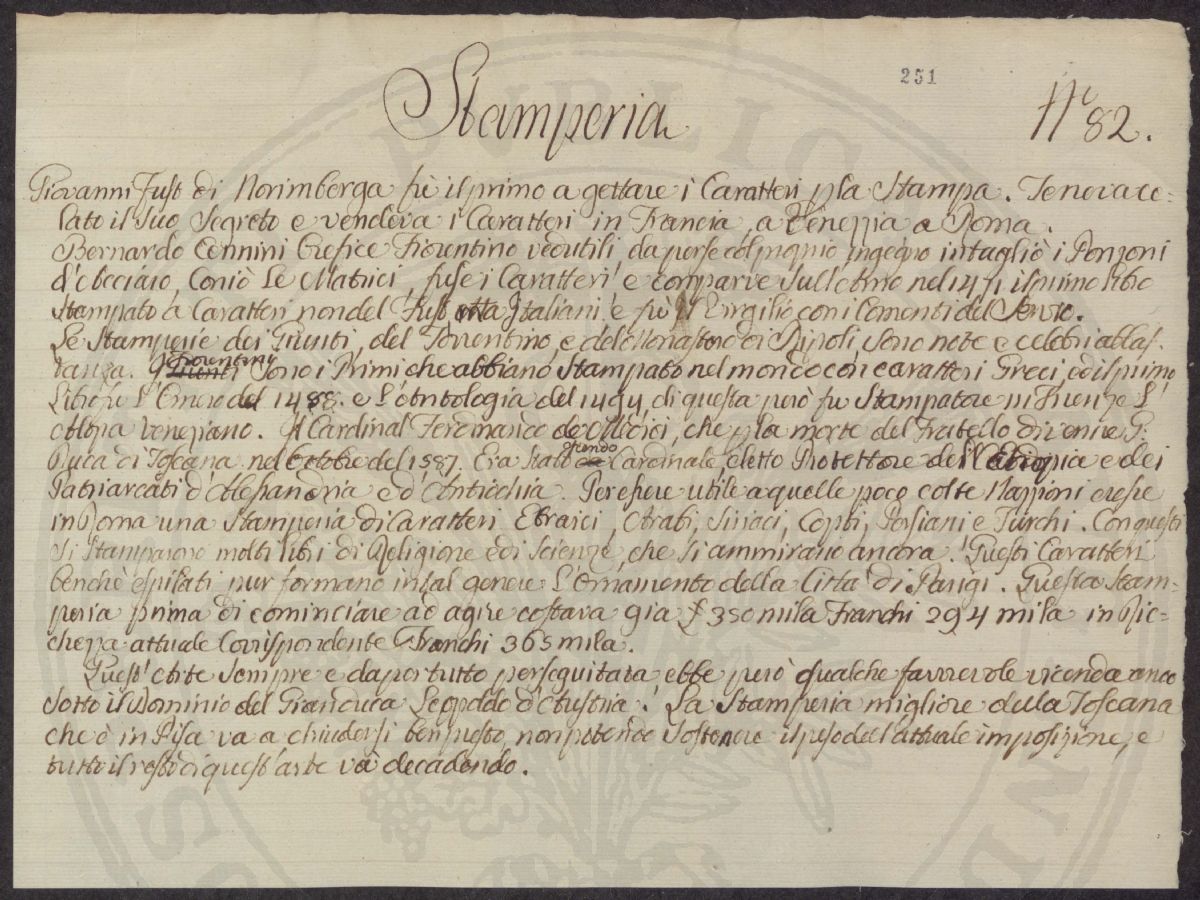 251
Stamperia
N.° 82.
Giovanni Fust di Norimberga fù il primo a gettare i Caratteri p la Stampa. Teneva ce-
lato il suo Segreto e vendeva i Caratteri in Francia, a Venezzia a Roma.
Bernardo Cennini Orefice Fiorentino vedutili, da per se col proprio ingegno intagliò i Ponzoni
d'Acciaio, Coniò Le Matrici, fuse i Caratteri e comparve Sull'Arno nel 1471 il primo libro
Stampato a Caratteri non del Fust ma Italiani e fù il Virgilio con i Comenti del Servio.
Le Stamperie dei Giunti, del Torrentino, e del Monastero di Ripoli sono note e celebri abbas-
tanza. I Fiorentini Sono i Primi che abbiano Stampato nel mondo con caratteri Greci, ed il primo
Libro fu L'Omero del 1488. e L'Antologia del 1494, di questa però fu Stampatore in Firenze L'
Alopa Veneziano. Il Cardinal Ferdinando de Medici, che p la morte del Fratello divenne G.
Duca di Toscana nel Ottobre del 1587. Era Stato essendo Cardinale, eletto Protettore dell'Etiopia e dei
Patriarcati d'Alessandria e d'Antiochia. Per essere utile a quelle poco colte Nazzioni eresse
in Roma una Stamperia di Caratteri Ebraici, Arabi, Siriaci, Copti, Persiani e Turchi. Con questi
Si Stamparono molti libri di Religione e di Scienze, che si ammirano ancora. Questi Caratteri
benchè espilati pur formano in tal genere L'Ornamento della Città di Parigi. Questa Stam-
peria prima di cominciare ad agire costava già £ 350 mila Franchi 294 mila in Ric-
chezza attuale Corrispondente Franchi 365 mila.
Quest'Arte sempre e da per tutto perseguitata ebbe però qualche favorevole vicenda anco
Sotto il Dominio del Granduca Leopoldo d'Austria. La Stamperia migliore della Toscana
che è in Pisa va a chiudersi ben presto, non potendo Sostenere il peso dell'attuale imposizione, e
tutto il resto di quest'arte và decadendo.